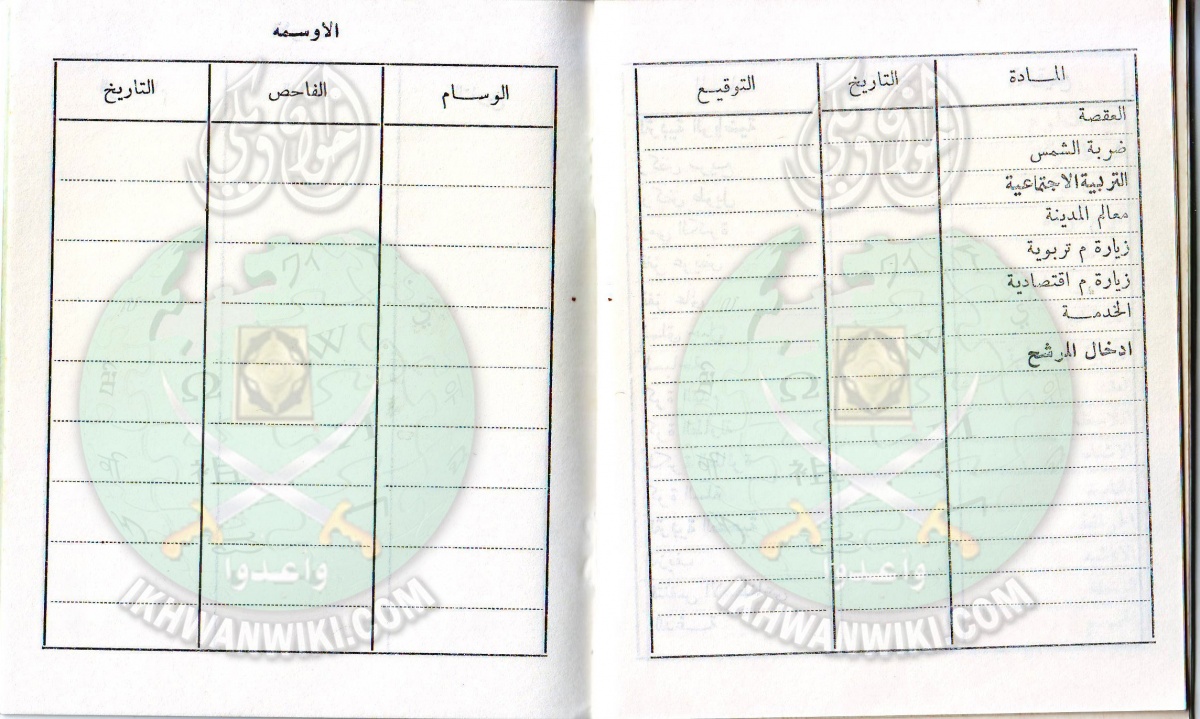 المادة التاريخ التوقيع
العقصة
ضربة الشمس
التربية الاجتماعية
معالم المدينة
زيارة م تربوية
زيارة م اقتصادية
الخدمة
ادخال المرشح
واعدوا
IKHWANWIKI.COM
الاوسمه
الوسام الفاحص التاريخ
واعدوا
IKHWANWIKI.COM